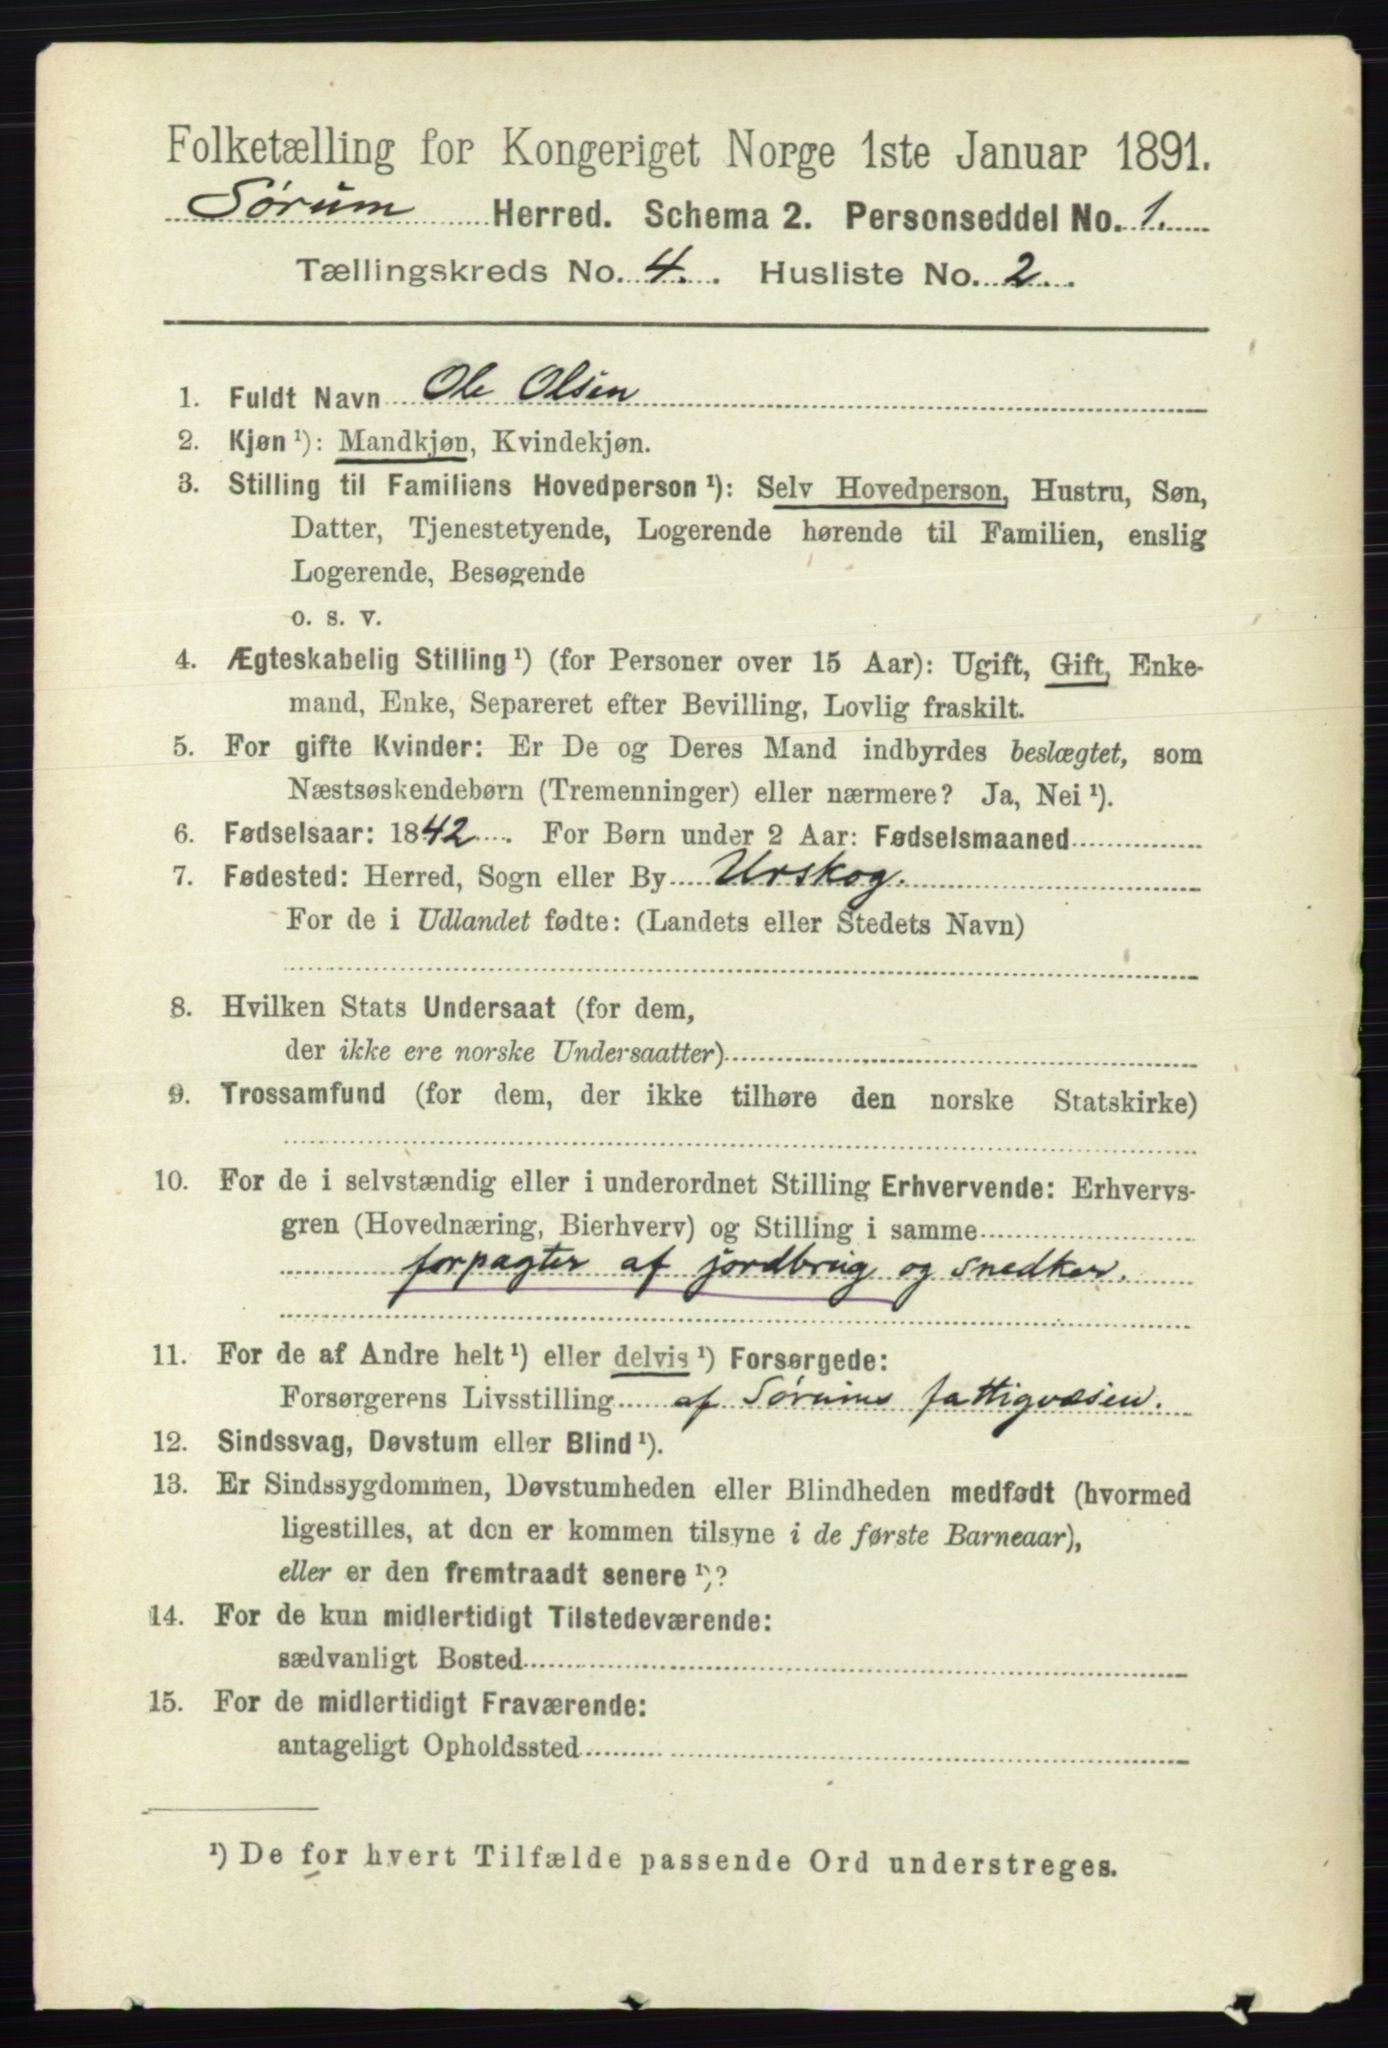 Folketælling for Kongeriget Norge 1ste Januar 1891.
Sørum Herred. Schema 2. Personseddel No. 1.
Tællingskreds No. 4. Husliste No. 2.
1. Fuldt Navn Ole Olsen
2. Kjøn ¹): Mandkjøn, Kvindekjøn.
3. Stilling til Familiens Hovedperson ¹): Selv Hovedperson, Hustru, Søn,
Datter, Tjenestetyende, Logerende hørende til Familien, enslig
Logerende, Besøgende
o. s. v.
4. Ægteskabelig Stilling ¹) (for Personer over 15 Aar): Ugift, Gift, Enke-
mand, Enke, Separeret efter Bevilling, Lovlig fraskilt.
5. For gifte Kvinder: Er De og Deres Mand indbyrdes beslægtet, som
Næstsøskendebørn (Tremenninger) eller nærmere? Ja, Nei ¹).
6. Fødselsaar: 1842. For Børn under 2 Aar: Fødselsmaaned
7. Fødested: Herred, Sogn eller By Urskog.
For de i Udlandet fødte: (Landets eller Stedets Navn)
8. Hvilken Stats Undersaat (for dem,
der ikke ere norske Undersaatter)
9. Trossamfund (for dem, der ikke tilhøre den norske Statskirke)
10. For de i selvstændig eller i underordnet Stilling Erhvervende: Erhvervs-
gren (Hovednæring, Bierhverv) og Stilling i samme
forpagter af jordbrug og snedker.
11. For de af Andre helt ¹) eller delvis ¹) Forsørgede:
Forsørgerens Livsstilling af Sørums fattigvæsen.
12. Sindssvag, Døvstum eller Blind ¹).
13. Er Sindssygdommen, Døvstumheden eller Blindheden medfødt (hvormed
ligestilles, at den er kommen tilsyne i de første Barneaar),
eller er den fremtraadt senere ¹)?
14. For de kun midlertidigt Tilstedeværende:
sædvanligt Bosted
15. For de midlertidigt Fraværende:
antageligt Opholdssted
¹) De for hvert Tilfælde passende Ord understreges.